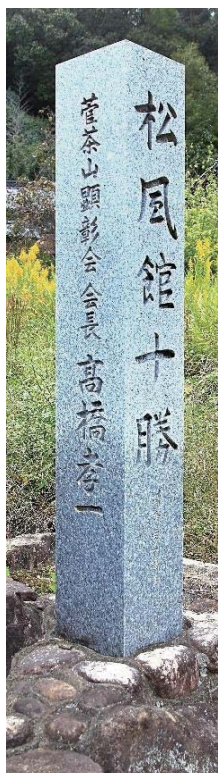 松風館十勝
菅茶山顕彰会会長 髙橋孝一